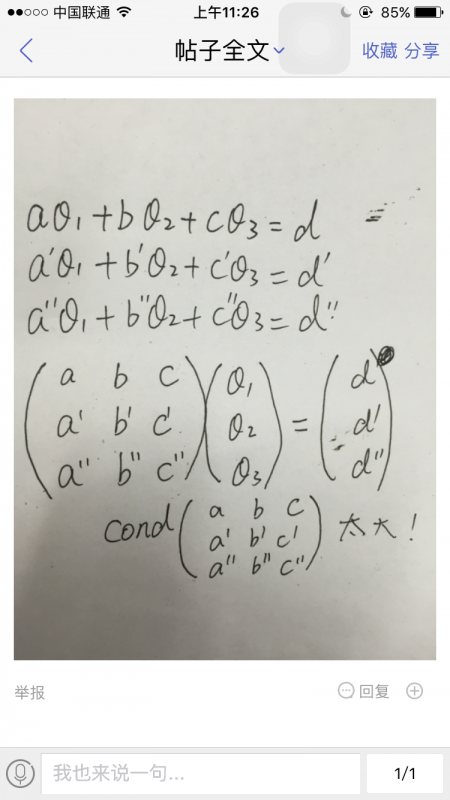 中国联通 上午11:26 85%
帖子全文 收藏 分享
aθ₁+bθ₂+cθ₃=d
a'θ₁+b'θ₂+c'θ₃=d'
a"θ₁+b"θ₂+c"θ₃=d"
a b c θ₁ d
a' b' c' θ₂ = d'
a" b" c" θ₃ d"
a b c
cond a' b' c' 太大!
a" b" c"
举报 回复
我也来说一句... 1/1